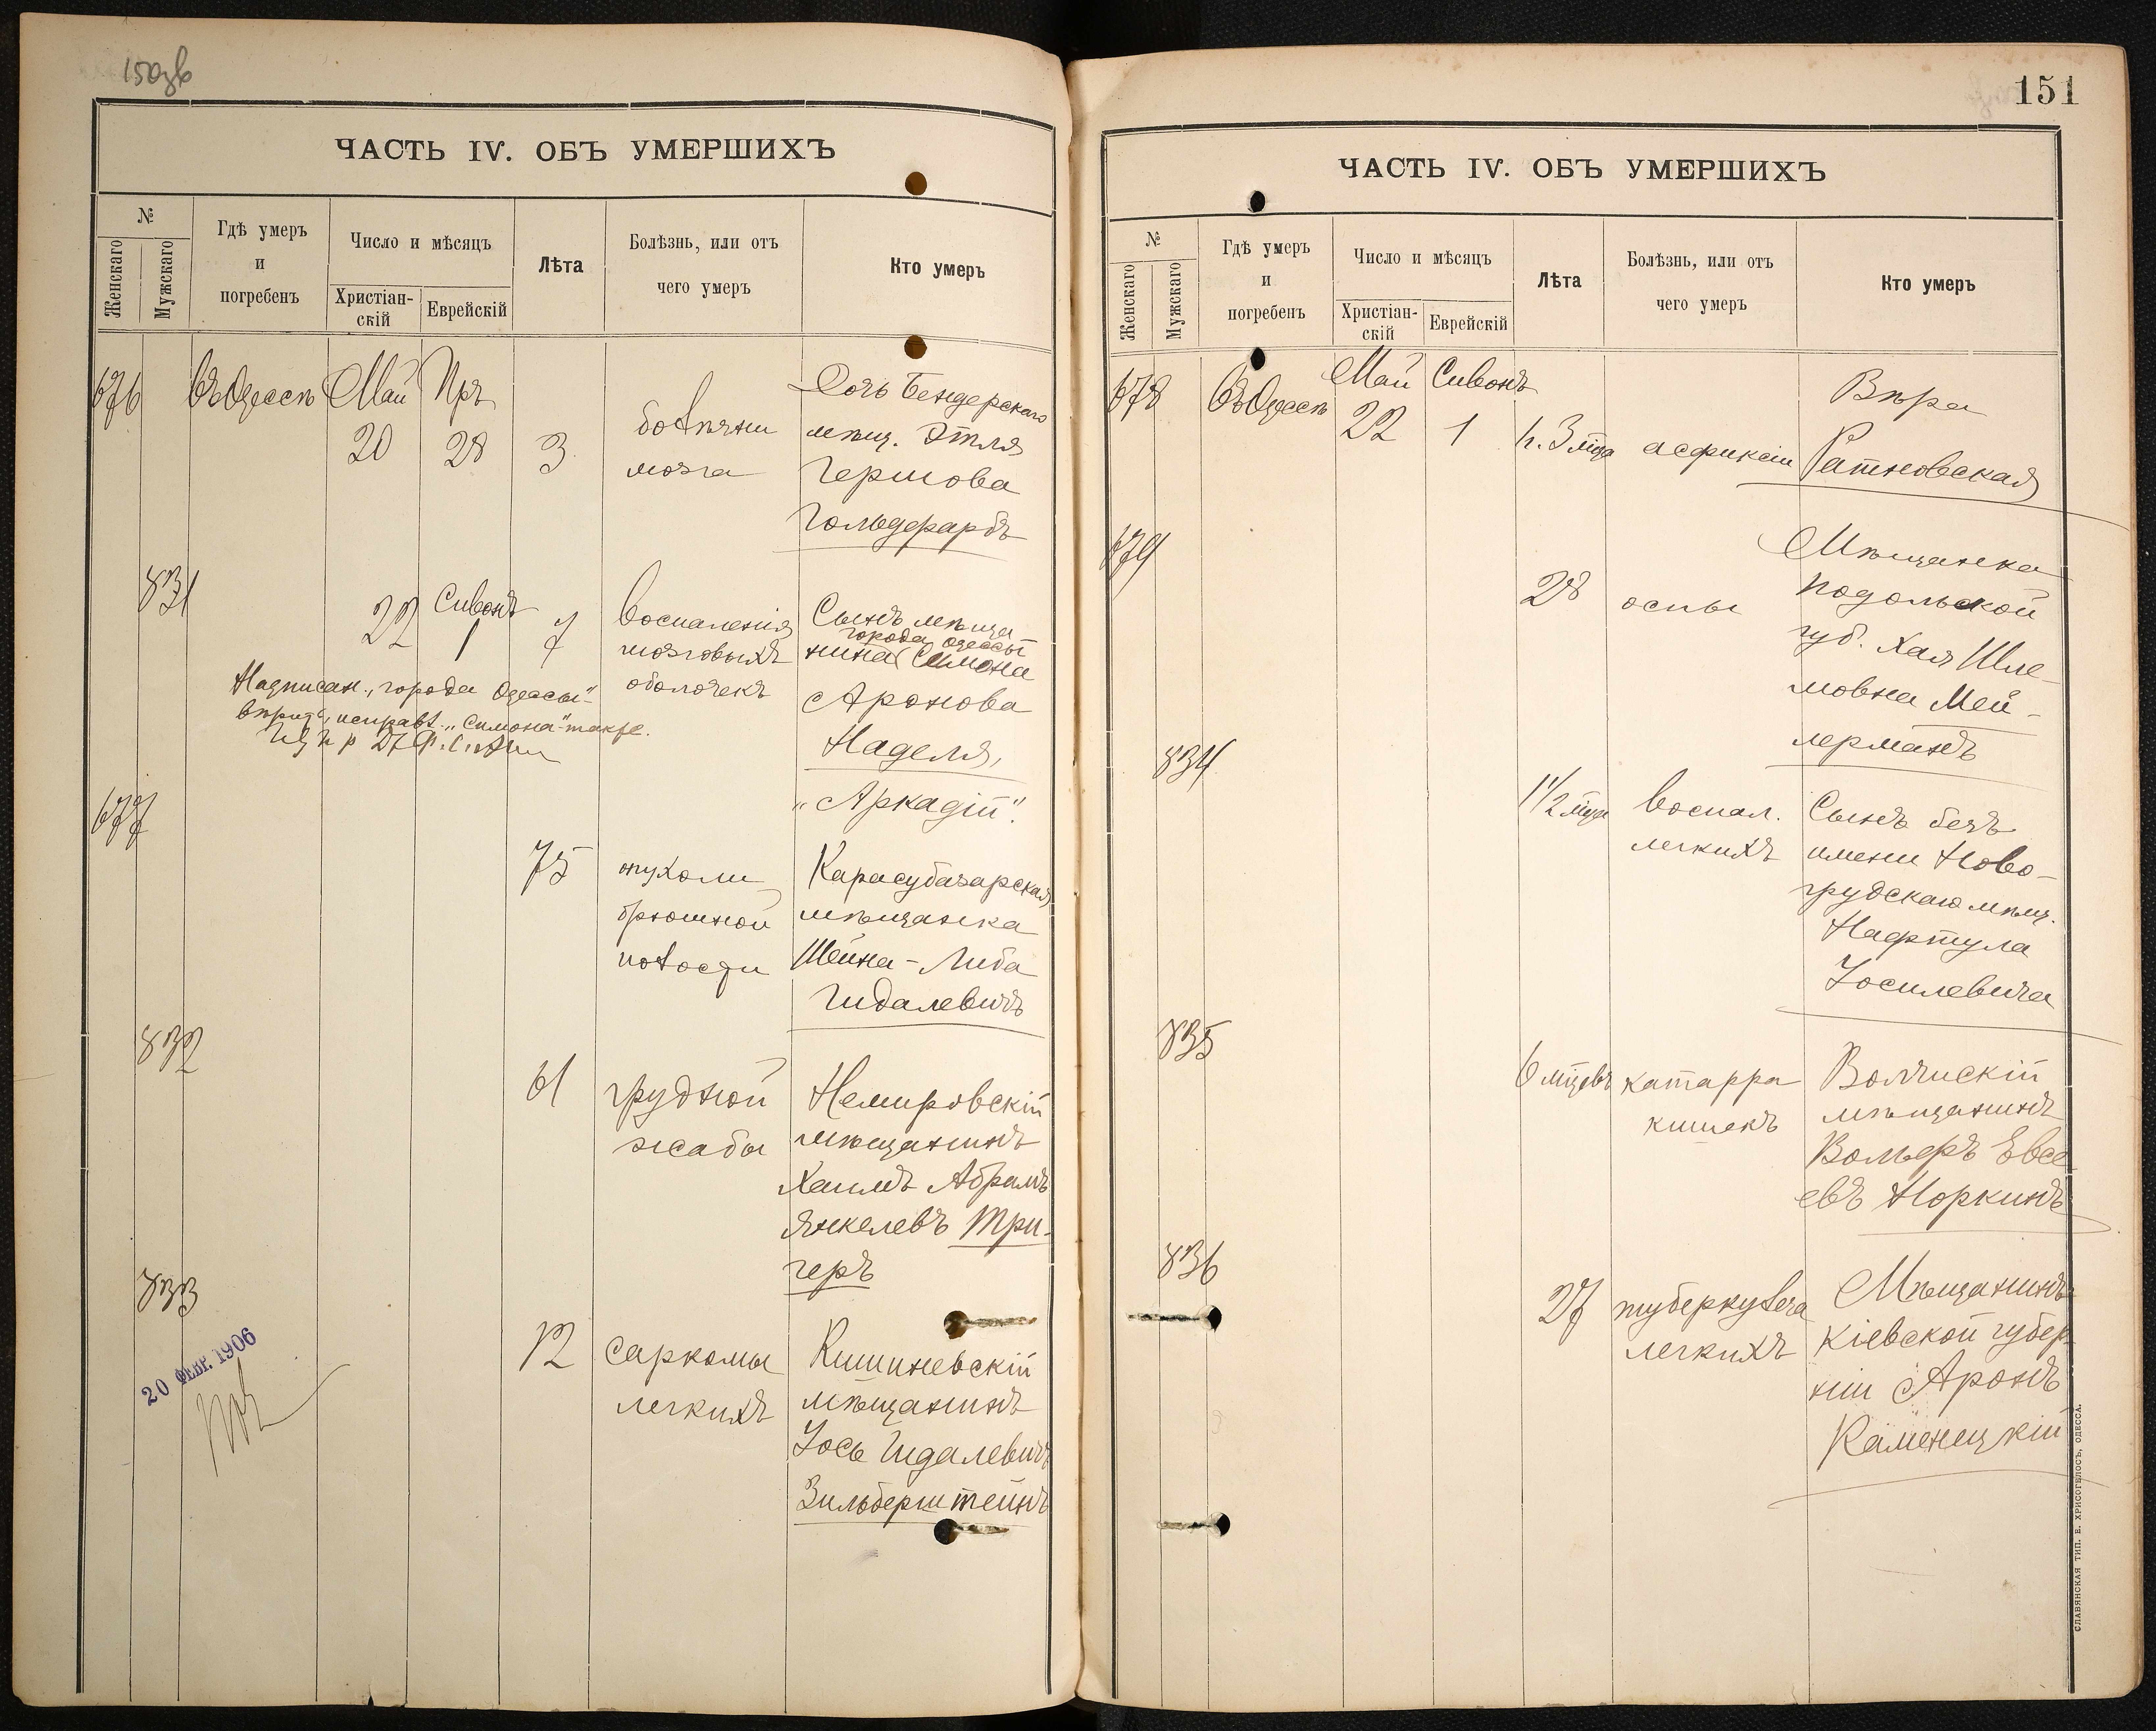 150зв
ЧАСТЬ IV. ОБЪ УМЕРШИХЪ
№
Женскаго
Мужскаго
Гдѣ умеръ
и
погребенъ
Число и мѣсяцъ
Христіан-
скій
Еврейскій
Лѣта
Болѣзнь, или отъ
чего умеръ
Кто умеръ
676
въ Одессѣ
Май
20
Іяръ
28
3
болѣзни
мозга
Дочь Бендерскаго
мѣщ. Этля
Гершова
Гольдфарбъ
831
22
Сивонъ
1
7
воспаленія
мозговыхъ
оболочекъ
Сынъ мѣща
города Одессы
нина Симона
Аронова
Наделя,
„Аркадій“.
Надписан. „города Одессы“
вѣрить, исправл. „Симона“ также.
677
75
опухоли
брюшной
полости
Карасубазарская
мѣщанка
Шейна-Либа
Гидалевичъ
832
61
грудной
жабы
Немировскій
мѣщанинъ
Хаимъ Абрамъ
Янкелевъ Три-
геръ
833
12
саркомы
легкихъ
Кишиневскій
мѣщанинъ
Іось Гидалевичъ
Зильберштейнъ
20 ФЕВР. 1906
151
ЧАСТЬ IV. ОБЪ УМЕРШИХЪ
№
Женскаго
Мужскаго
Гдѣ умеръ
и
погребенъ
Число и мѣсяцъ
Христіан-
скій
Еврейскій
Лѣта
Болѣзнь, или отъ
чего умеръ
Кто умеръ
678
въ Одессѣ
Май
22
Сивонъ
1
ч. 3 мѣс
асфиксіи
Вѣра
Ратновская
679
28
оспы
Мѣщанка
Подольской
губ. Хая Шле-
мовна Мей-
лерманъ
834
1 1/2 мѣс
воспал.
легкихъ
Сынъ безъ
имени Ново-
грудскаго мѣщ.
Нафтула
Іосилевича
835
6 мѣсцевъ
катарра
кишекъ
Волчискій
мѣщанинъ
Вольфъ Евсе
евъ Норкинъ
836
27
туберкулеза
легкихъ
Мѣщанинъ
Кіевской губер
ніи Аронъ
Каменецкій
СЛАВЯНСКАЯ ТИП. Е. ХРИСОГЕЛОСЪ, ОДЕССА.